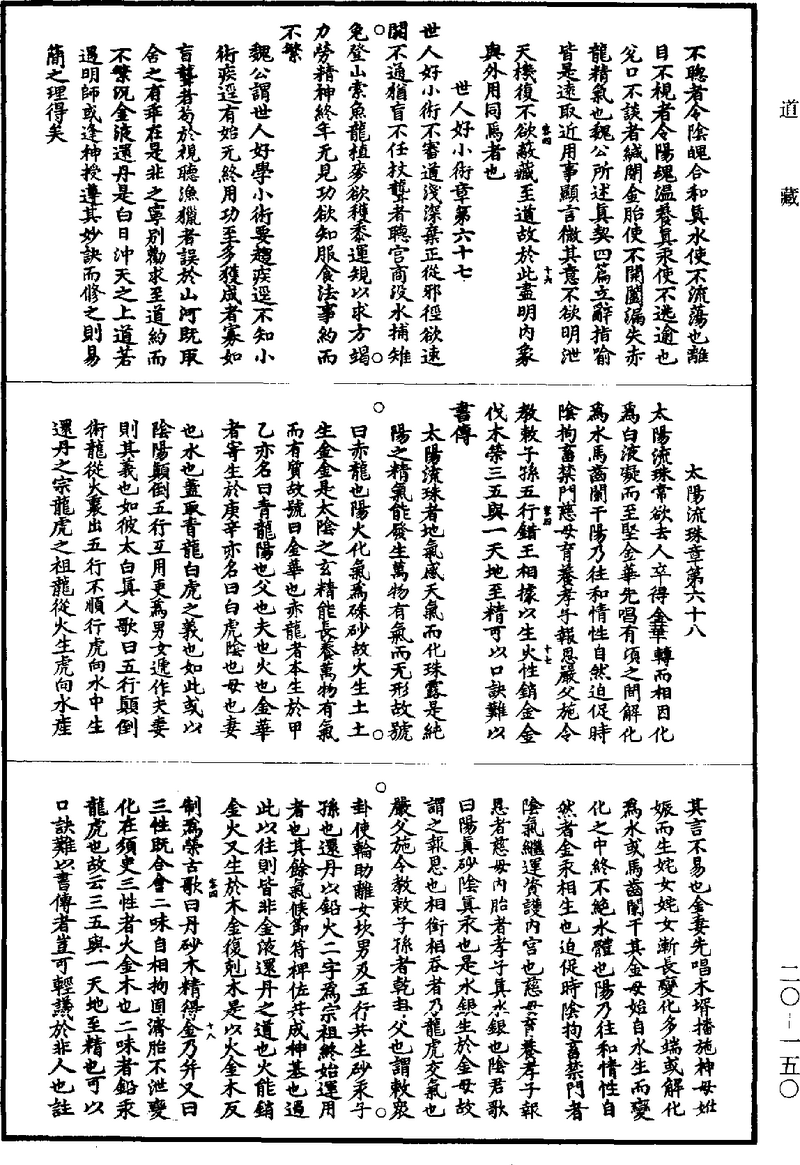 道藏
不聰者令陰魄合和真水使不流蕩也離
目不視者令陽魂溫養真汞使不逃逾也
兌口不談者緘閉金胎使不開闔漏失亦
龍精氣也魏公所述真契四篇立辭指喻
皆是遠取近用事顯言微其意不欲明泄
天機復不欲蔽藏至道故於此盡明內象
與外用同焉者也
世人好小術章第六十七
世人好小術不審道淺深棄正從邪徑欲速
閼不通猶盲不任杖聾者聽宮商沒水捕雉
兔登山索魚龍植麥欲穫黍運規以求方竭
力勞精神終年无見功欲知服食法事約而
不繁
魏公謂世人好學小術要趨疾逕不知小
術疾逕有始无終用功至多獲成者寡如
盲聾者苟於視聽漁獵者誤於山河既取
舍之有乖在是非之寧別勸求至道約而
不繁況金液還丹是白日沖天之上道若
遇明師或逢神授遵其妙訣而修之則易
簡之理得矣
太陽流珠章第六十八
太陽流珠常欲去人卒得金華轉而相因化
為白液凝而至堅金華先唱有頃之間解化
為水馬齒闌干陽乃往和情性自然迫促時
陰拘畜禁門慈母育養孝子報恩嚴父施令
教敕子孫五行錯王相據以生火性銷金金
伐木榮三五與一天地至精可以口訣難以
書傳
太陽流珠者地氣感天氣而化珠露是純
陽之精氣能發生萬物有氣而无形故號
曰赤龍也陽火化氣為硃砂故火生土土
生金金是太陰之玄精能長養萬物有氣
而有質故號曰金華也赤龍者本生於甲
乙亦名曰青龍陽也父也夫也火也金華
者寄生於庚辛亦名曰白虎陰也母也妻
也水也蓋取青龍白虎之義也如此或以
陰陽顛倒五行互用更為男女遞作夫妻
則其義也如彼太白真人歌曰五行顛倒
術龍從火裏出五行不順行虎向水中生
還丹之宗龍虎之祖龍從火生虎向水產
其言不易也金妻先唱木壻播施神母姙
娠而生姹女姹女漸長變化多端或解化
為水或馬齒闌干其金母始自水生而變
化之中終不絕水體也陽乃往和情性自
然者金汞相生也迫促時陰拘畜禁門者
陰氣繼運資護內宮也慈母育養孝子報
恩者慈母內胎者孝子真水銀也陰君歌
曰陽真砂陰真汞也是水銀生於金母故
謂之報恩也相銜相吞者乃龍虎交氣也
嚴父施令教敕子孫者乾卦父也謂敕眾
卦使輪助離女坎男及五行共生砂汞子
孫也還丹以鉛火二字為宗祖終始運用
者也其餘氣候節符裨佐共成神基也過
此以往則皆非金液還丹之道也火能銷
金火又生於木金復剋木是以火金木反
制為榮古歌曰丹砂木精得金乃并又曰
三性既合會二味自相拘固濟胎不泄變
化在須臾三性者火金木也二味者鉛汞
龍虎也故云三五與一天地至精也可以
口訣難以書傳者豈可輕議於非人也註
二〇-一五〇